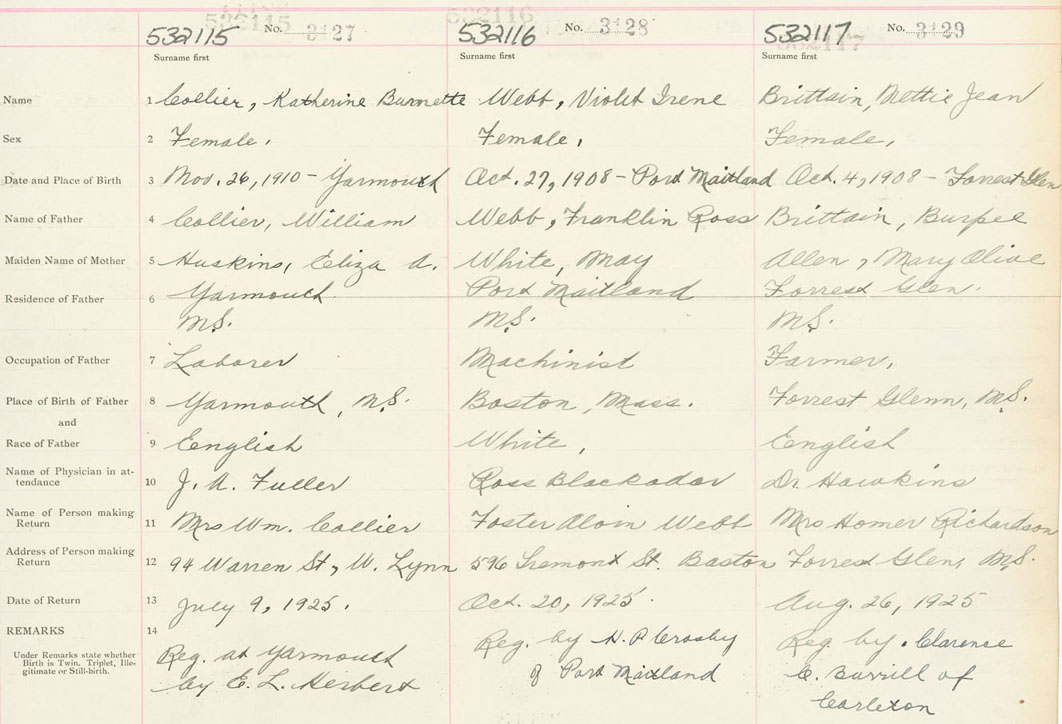 532115 No. 3127 532116 No. 3128 532117 No. 3129
Surname first Surname first Surname first
Name 1 Collier, Katherine Burnette Webb, Violet Irene Brittain, Nettie Jean
Sex 2 Female. Female. Female.
Date and Place of Birth 3 Nov. 26, 1910 - Yarmouth Oct. 27, 1908 - Port Maitland Oct. 4, 1908 - Forrest Glen
Name of Father 4 Collier, William Webb, Franklin Ross Brittain, Burpee
Maiden Name of Mother 5 Huskins, Eliza A. White, May Allen, Mary Olive
Residence of Father 6 Yarmouth Port Maitland Forrest Glen.
N.S. N.S. N.S.
Occupation of Father 7 Laborer Machinist Farmer.
Place of Birth of Father 8 Yarmouth, N.S. Boston, Mass. Forrest Glenn, N.S.
and
Race of Father 9 English White, English
Name of Physician in at-
tendance 10 J. A. Fuller Ross Blackadar Dr. Hawkins
Name of Person making
Return 11 Mrs Wm. Collier Foster Webb Mrs Homer Richardson
Address of Person making
Return 12 94 Warren St, W. Lynn 596 Tremont St. Boston Forrest Glen, N.S.
Date of Return 13 July 9, 1925. Oct. 20, 1925. Aug. 26, 1925
REMARKS 14
Under Remarks state whether
Birth is Twin, Triplet, Ille-
gitimate or Still-birth.
Reg. at Yarmouth Reg. by H. P. Crosby Reg. by Clarence
by E. L. Herbert of Port Maitland C. Burrill of
Carleton